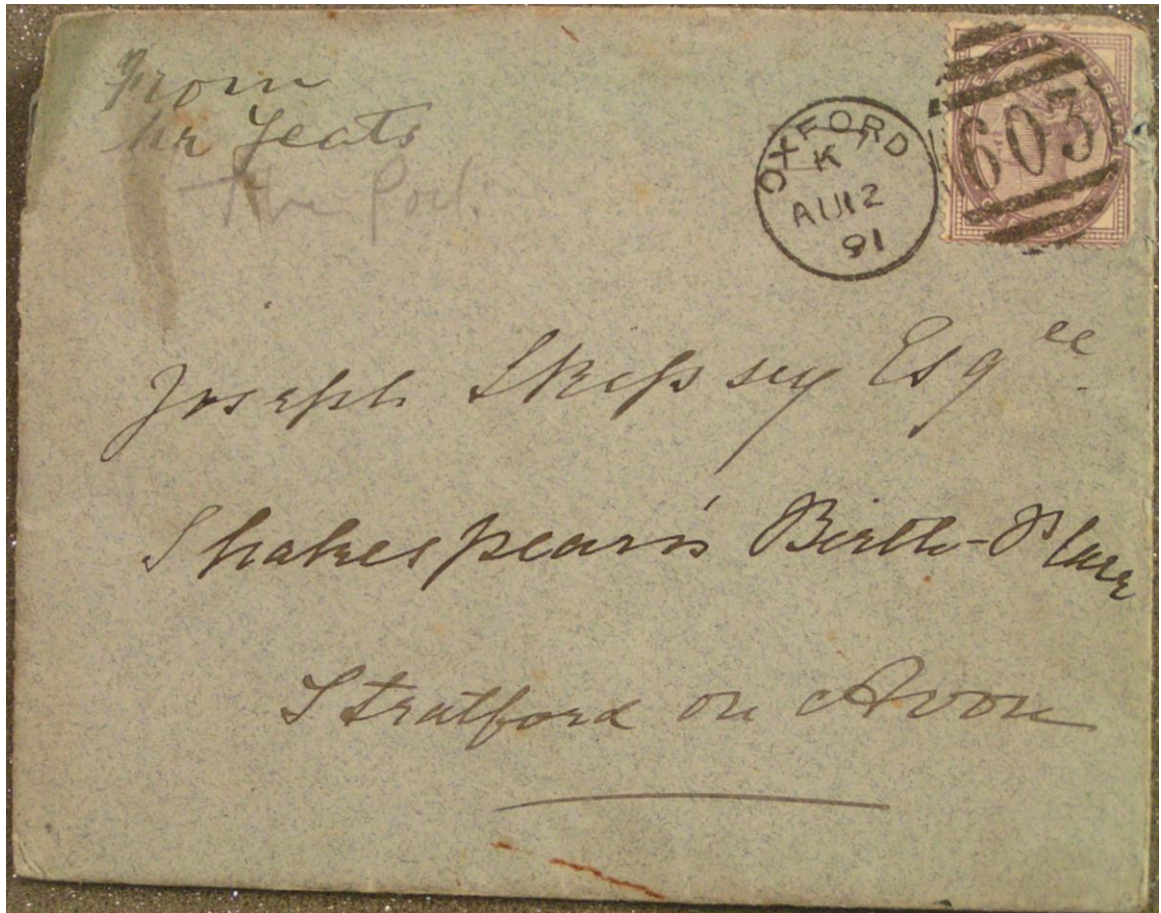 From
Mr Yeats
The Poet.
OXFORD
K
AU 12
91
603
Joseph Skipsey Esq^re
Shakespeare's Birth-Place
Stratford on Avon